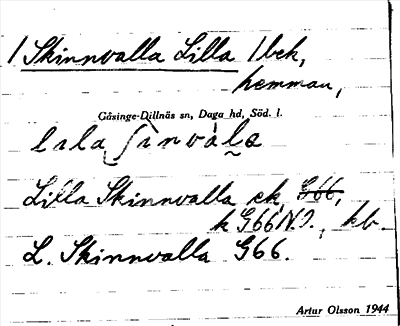 1 Skinnvalla Lilla 1 bek,
hemman,
Gåsinge-Dillnäs sn, Daga hd, Söd. l.
lila ʃinvala
Lilla Skinnvalla ek G66,
k G66N.O., kb.
L. Skinnvalla G66.
Artur Olsson 1944